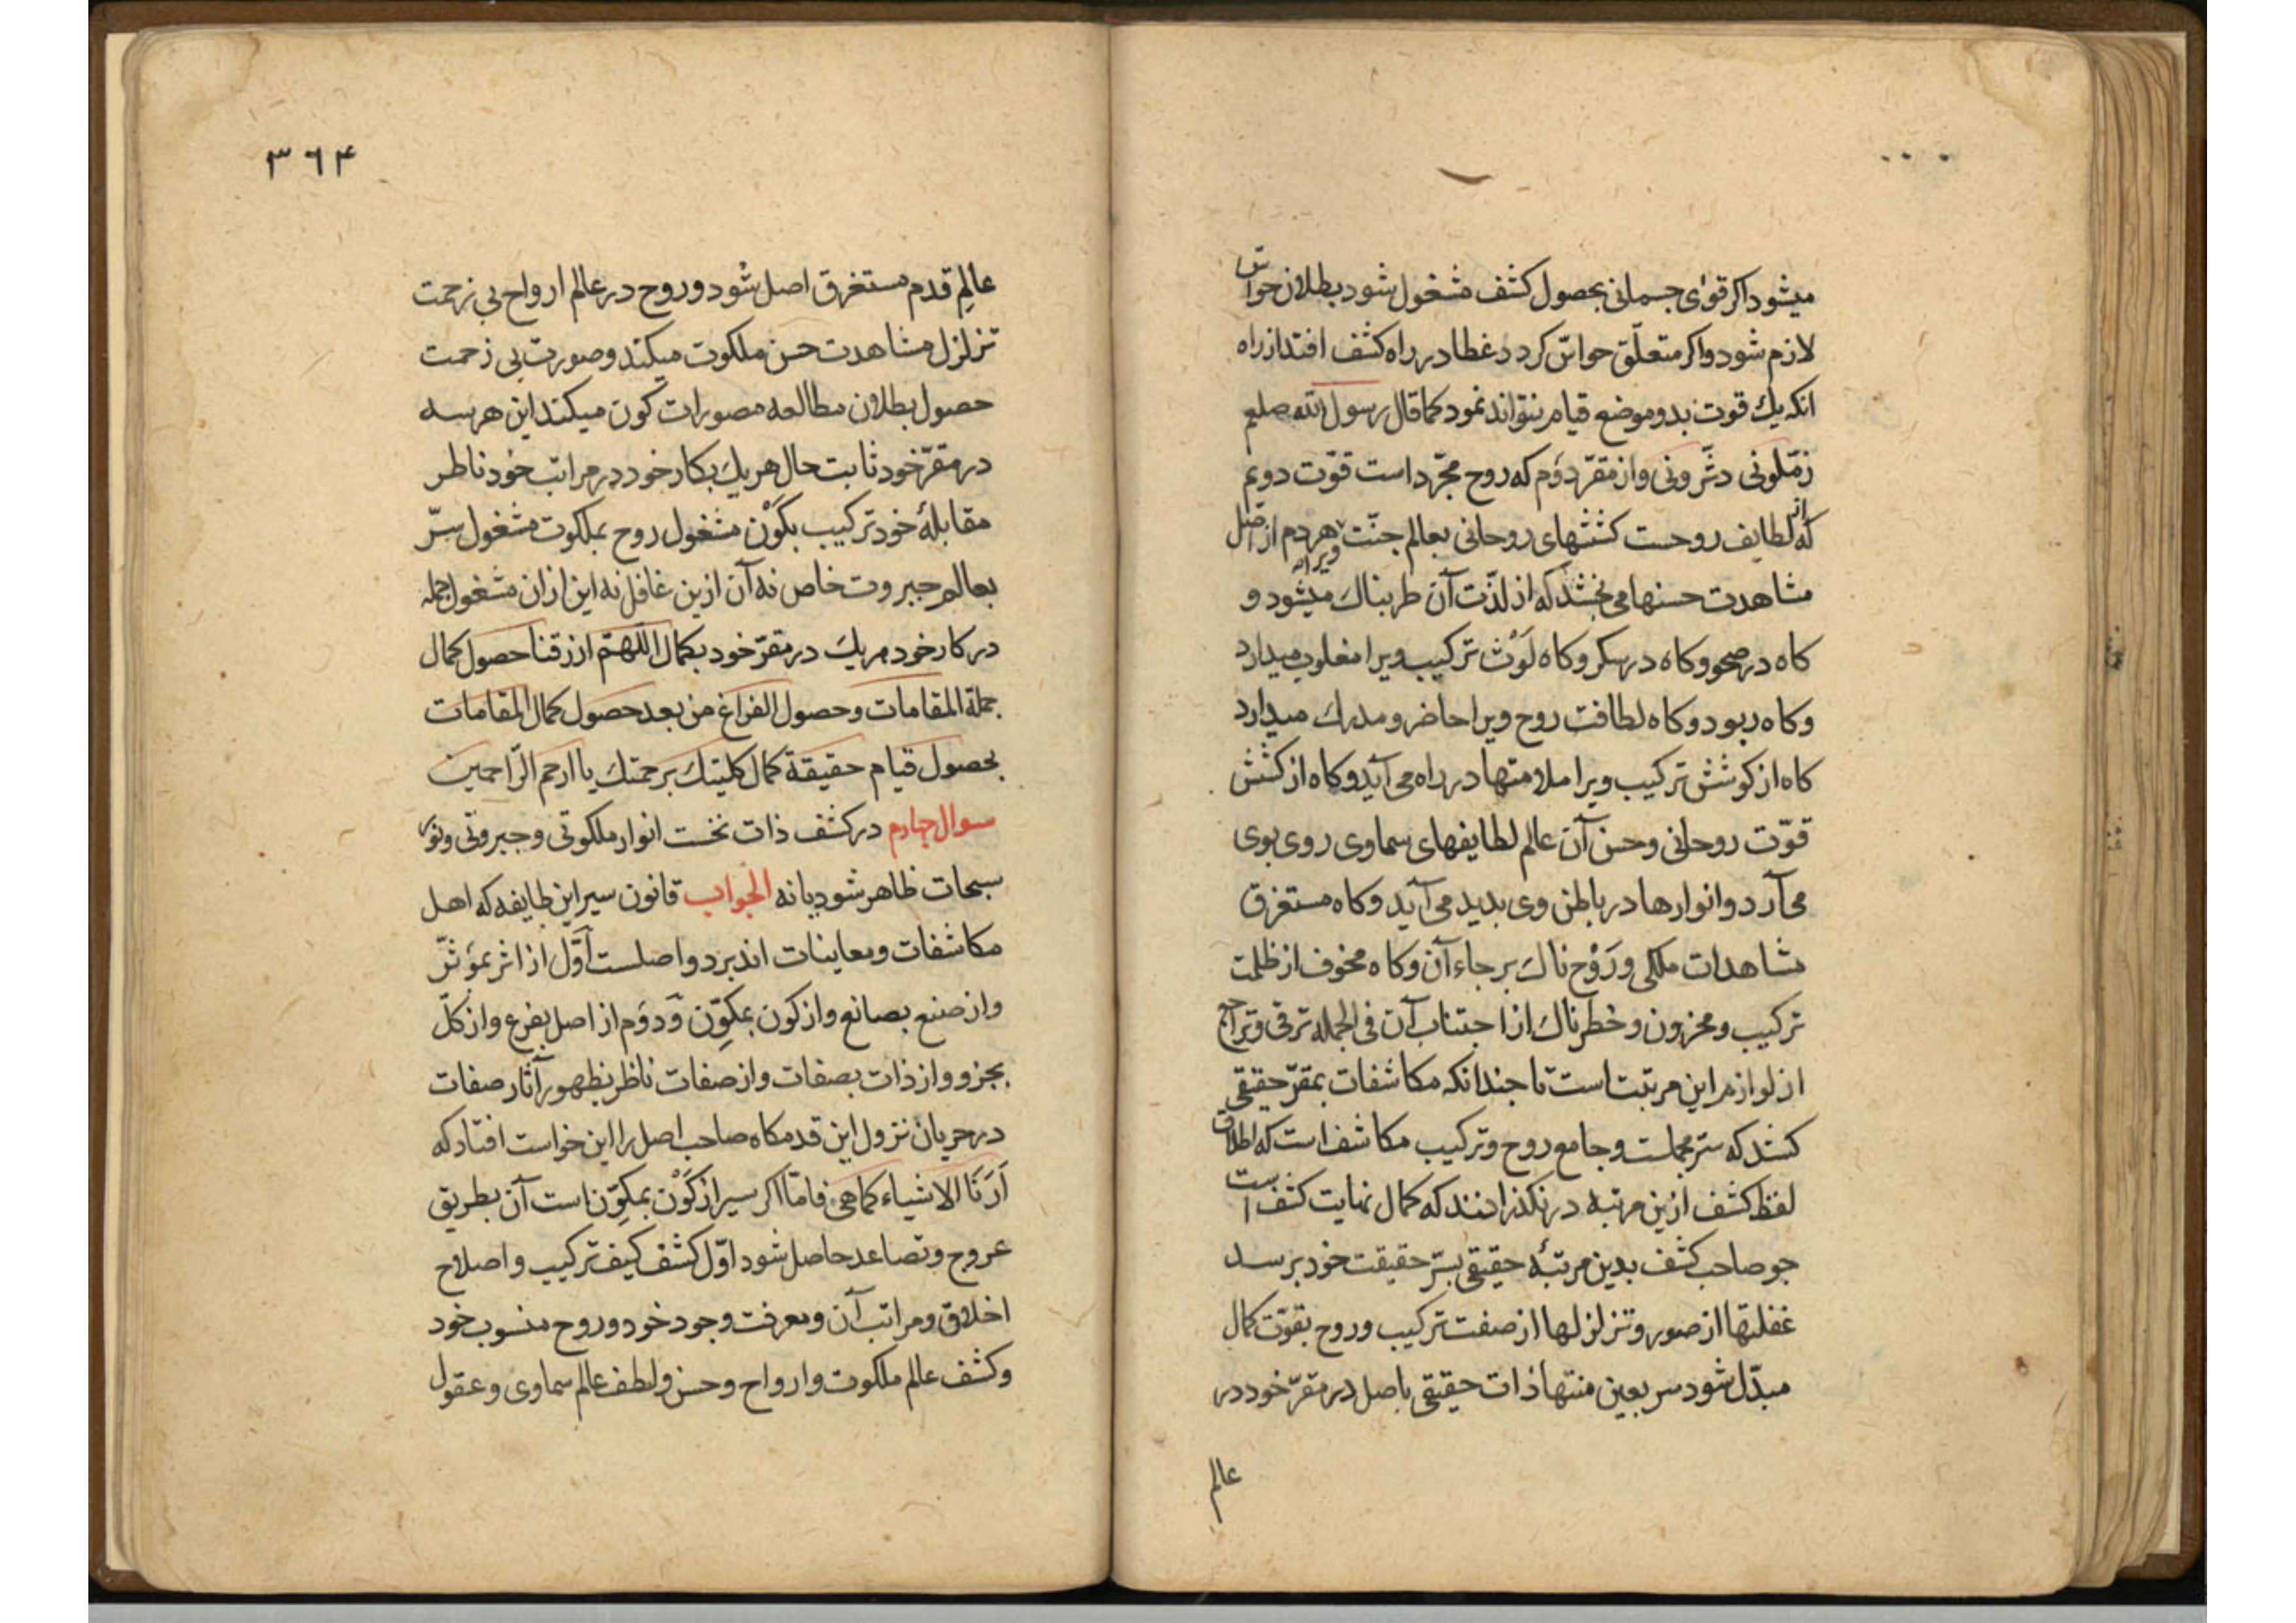 میشود اکر قوای جسمانی بحصول کشف مشغول شود بطلان حواس
لازم شود واکر متعلّق حواسّ کردد غطا در راه کشف افتد از راه
انکه یك قوت بدو موضع قیام نتواند نمود کما قال رسول الله صلعم
زمّلونی دثّرونی واز مقرّ دوّم که روح مجرّد است قوّت دویم
که از لطایف روحست کششهای روحانی بعالم جنّت ویرا هر دم از اصل
مشاهدت حسنها می بخشد که از لذّت آن طربناك میشود و
کاه در صحو وکاه در سکر وکاه لَوْث ترکیب ویرا مغلوب میدارد
وکاه ربود وکاه لطافت روح ویرا حاضر ومدرك میدارد
کاه از کوشش ترکیب ویرا ملامتها در راه می آید وکاه از کشش
قوّت روحانی وحسن آن عالم لطایفهای سماوی روی بوی
می آرد وانوارها در باطن وی بدید می آید وکاه مستغرق
مشاهدات ملکی ورَوْح ناك بر رجاء آن وکاه مخوف از ظلمت
ترکیب ومحزون وخطرناك از اجتناب آن فی الجمله ترقی وتراجع
از لوازم این مرتبت است تا جندانکه مکاشفات بمقرّ حقیقی
کشد که سرّ مجملست وجامع روح وترکیب مکاشف است که اطلاق
لفظ کشف ازین مرتبه در نکذرانند که کمال نهایت کشف است
جو صاحب کشف بدین مرتبهٔ حقیقی بسرّ حقیقت خود برسد
غفلتها از صور وتزلزلها از صفت ترکیب وروح بقوّت کمال
مبدّل شود سر بعین منتها ذات حقیقی باصل در مقرّ خود در
عالم
۳٦۴
عالمِ قدم مستغرق اصل شود وروح در عالم ارواح بی زحمت
تزلزل مشاهدت حسن ملکوت میکند وصورت بی زحمت
حصول بطلان مطالعه مصورات کون میکند این هر سه
در مقرّ خود ثابت حال هر یك بکار خود در مراتب خود ناظر
مقابلهٔ خود ترکیب بکَوْن مشغول روح بملکوت مشغول سرّ
بعالم جبروت خاص نه آن ازین غافل نه این ازان مشغول جمله
در کار خود هر یك در مقرّ خود بکمال اللّهمّ ارزقنا حصول کمال
جملة المقامات وحصول الفراغ من بعد حصول کمال المقامات
بحصول قیام حقیقة کمال کلیتك برحمتك یا ارحم الرّاحمین
سوال جهارم در کشف ذات نخست انوار ملکوتی وجبروتی ونور
سبحات ظاهر شود یا نه الجواب قانون سیر این طایفه که اهل
مکاشفات ومعاینات اند بر دو اصلست اَوّل از اثر بمؤثّر
واز صنع بصانع واز کون بمکوِّن وَدوَم از اصل بفرع واز کلّ
بجزو واز ذات بصفات واز صفات ناظر بظهور آثار صفات
در جریان نزول این قدمکاه صاحب اصل را این خواست افتاد که
اَرَنَا الاشیاء کما هی فامّا اکر سیر از کَوْن بمکوِّن است آن بطریق
عروج وتصاعد حاصل شود اوّل کشف کیف ترکیب واصلاح
اخلاق ومراتب آن ومعرفت وجود خود وروح منسوب خود
وکشف عالم ملکوت وارواح وحسن ولطف عالم سماوی وعقول